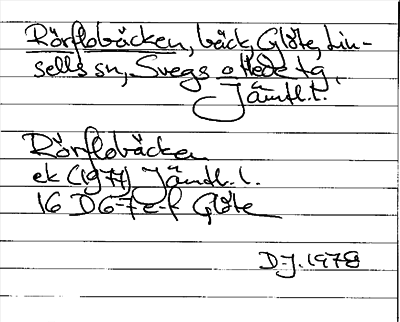 Rörflobäcken, bäck, Glöte, Lin-
sells sn, Svegs o Hede tg,
Jämtl. l.
Rörflobäcken
ek (1977) Jämtl. l.
16 D 6-7 e-f Glöte
D-J. 1978